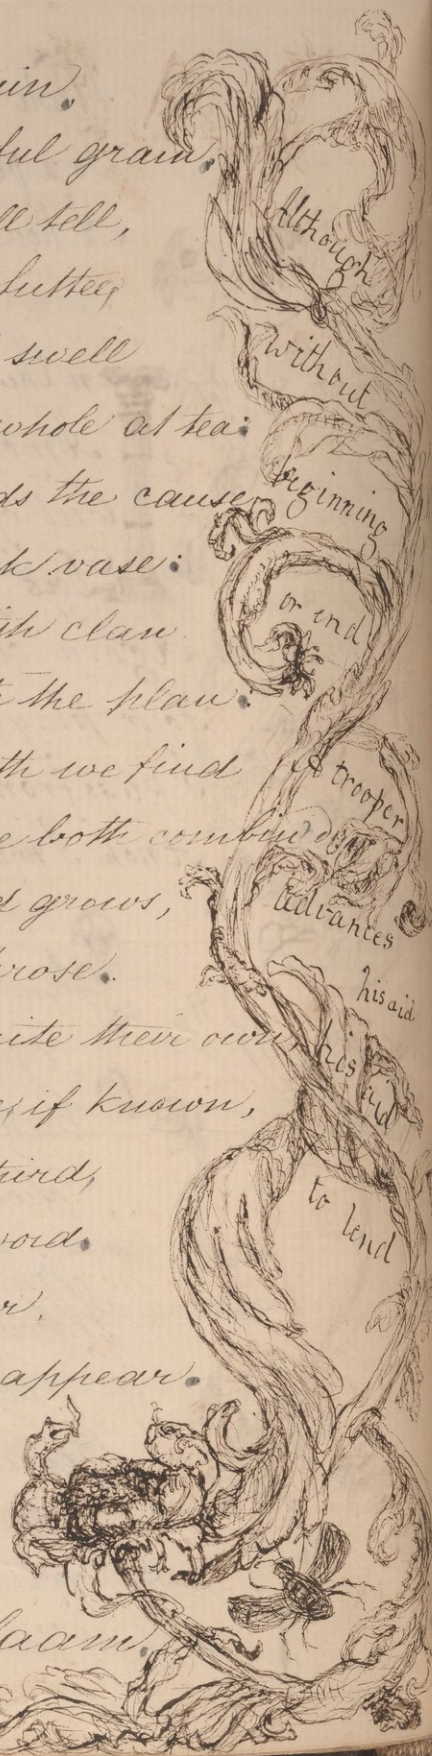 ful grain,
ll tell,
swell
whole at tea:
ds the cause,
k vase:
th claw
t the plan:
th we find
e both combin'd
d grows,
rose.
uite their own,
if known,
hird,
word.
r,
appear.
laam,
Although
without
beginning
or end
trooper
advances
his aid
his aid
to lend